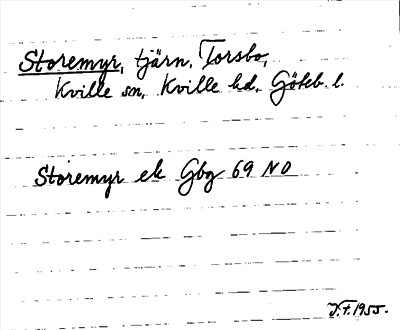 Storemyr, tjärn, Torsbo,
Kville sn, Kville hd, Göteb. l.
Storemyr ek Gbg 69 NO
J.t. 1955.